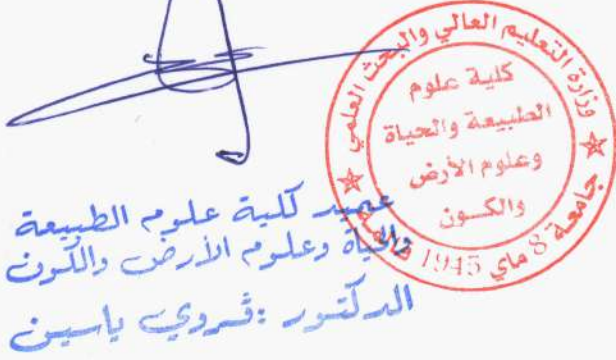 وزارة التعليم العالي والبحث العلمي
كلية علوم
الطبيعة والحياة
وعلوم الأرض
والكون
جامعة 8 ماي 1945 قالمة
عميد كلية علوم الطبيعة
والحياة وعلوم الأرض والكون
الدكتور : ڤروي ياسين